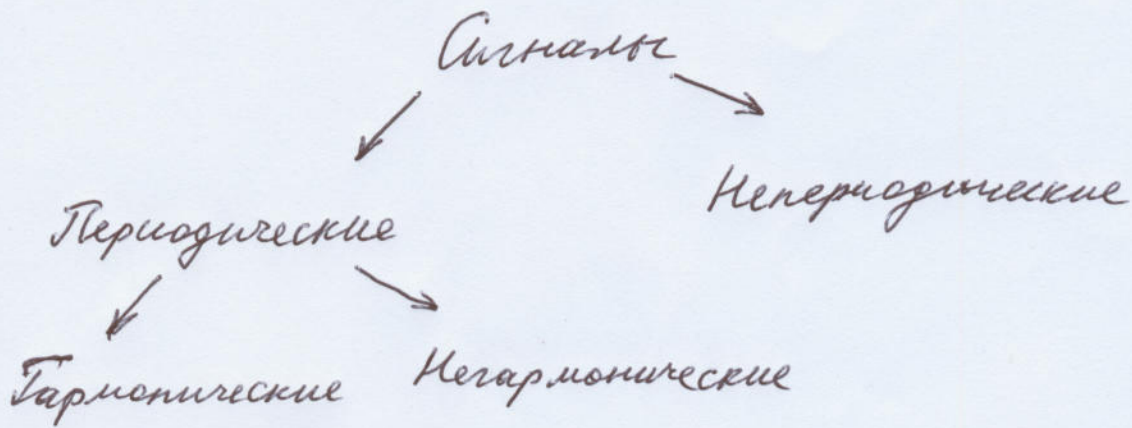 Сигналы
Непериодические
Периодические
Гармонические
Негармонические